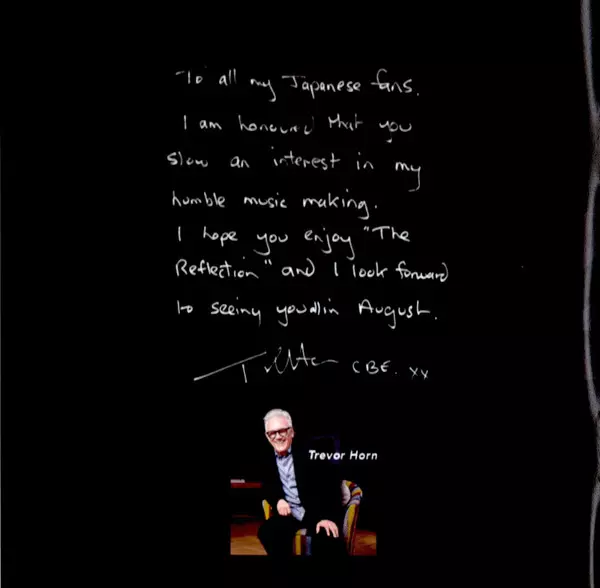 To all my Japanese fans.
I am honoured that you
show an interest in my
humble music making.
I hope you enjoy "The
Reflection" and I look forward
to seeing you all in August.
CBE. xx
Trevor Horn